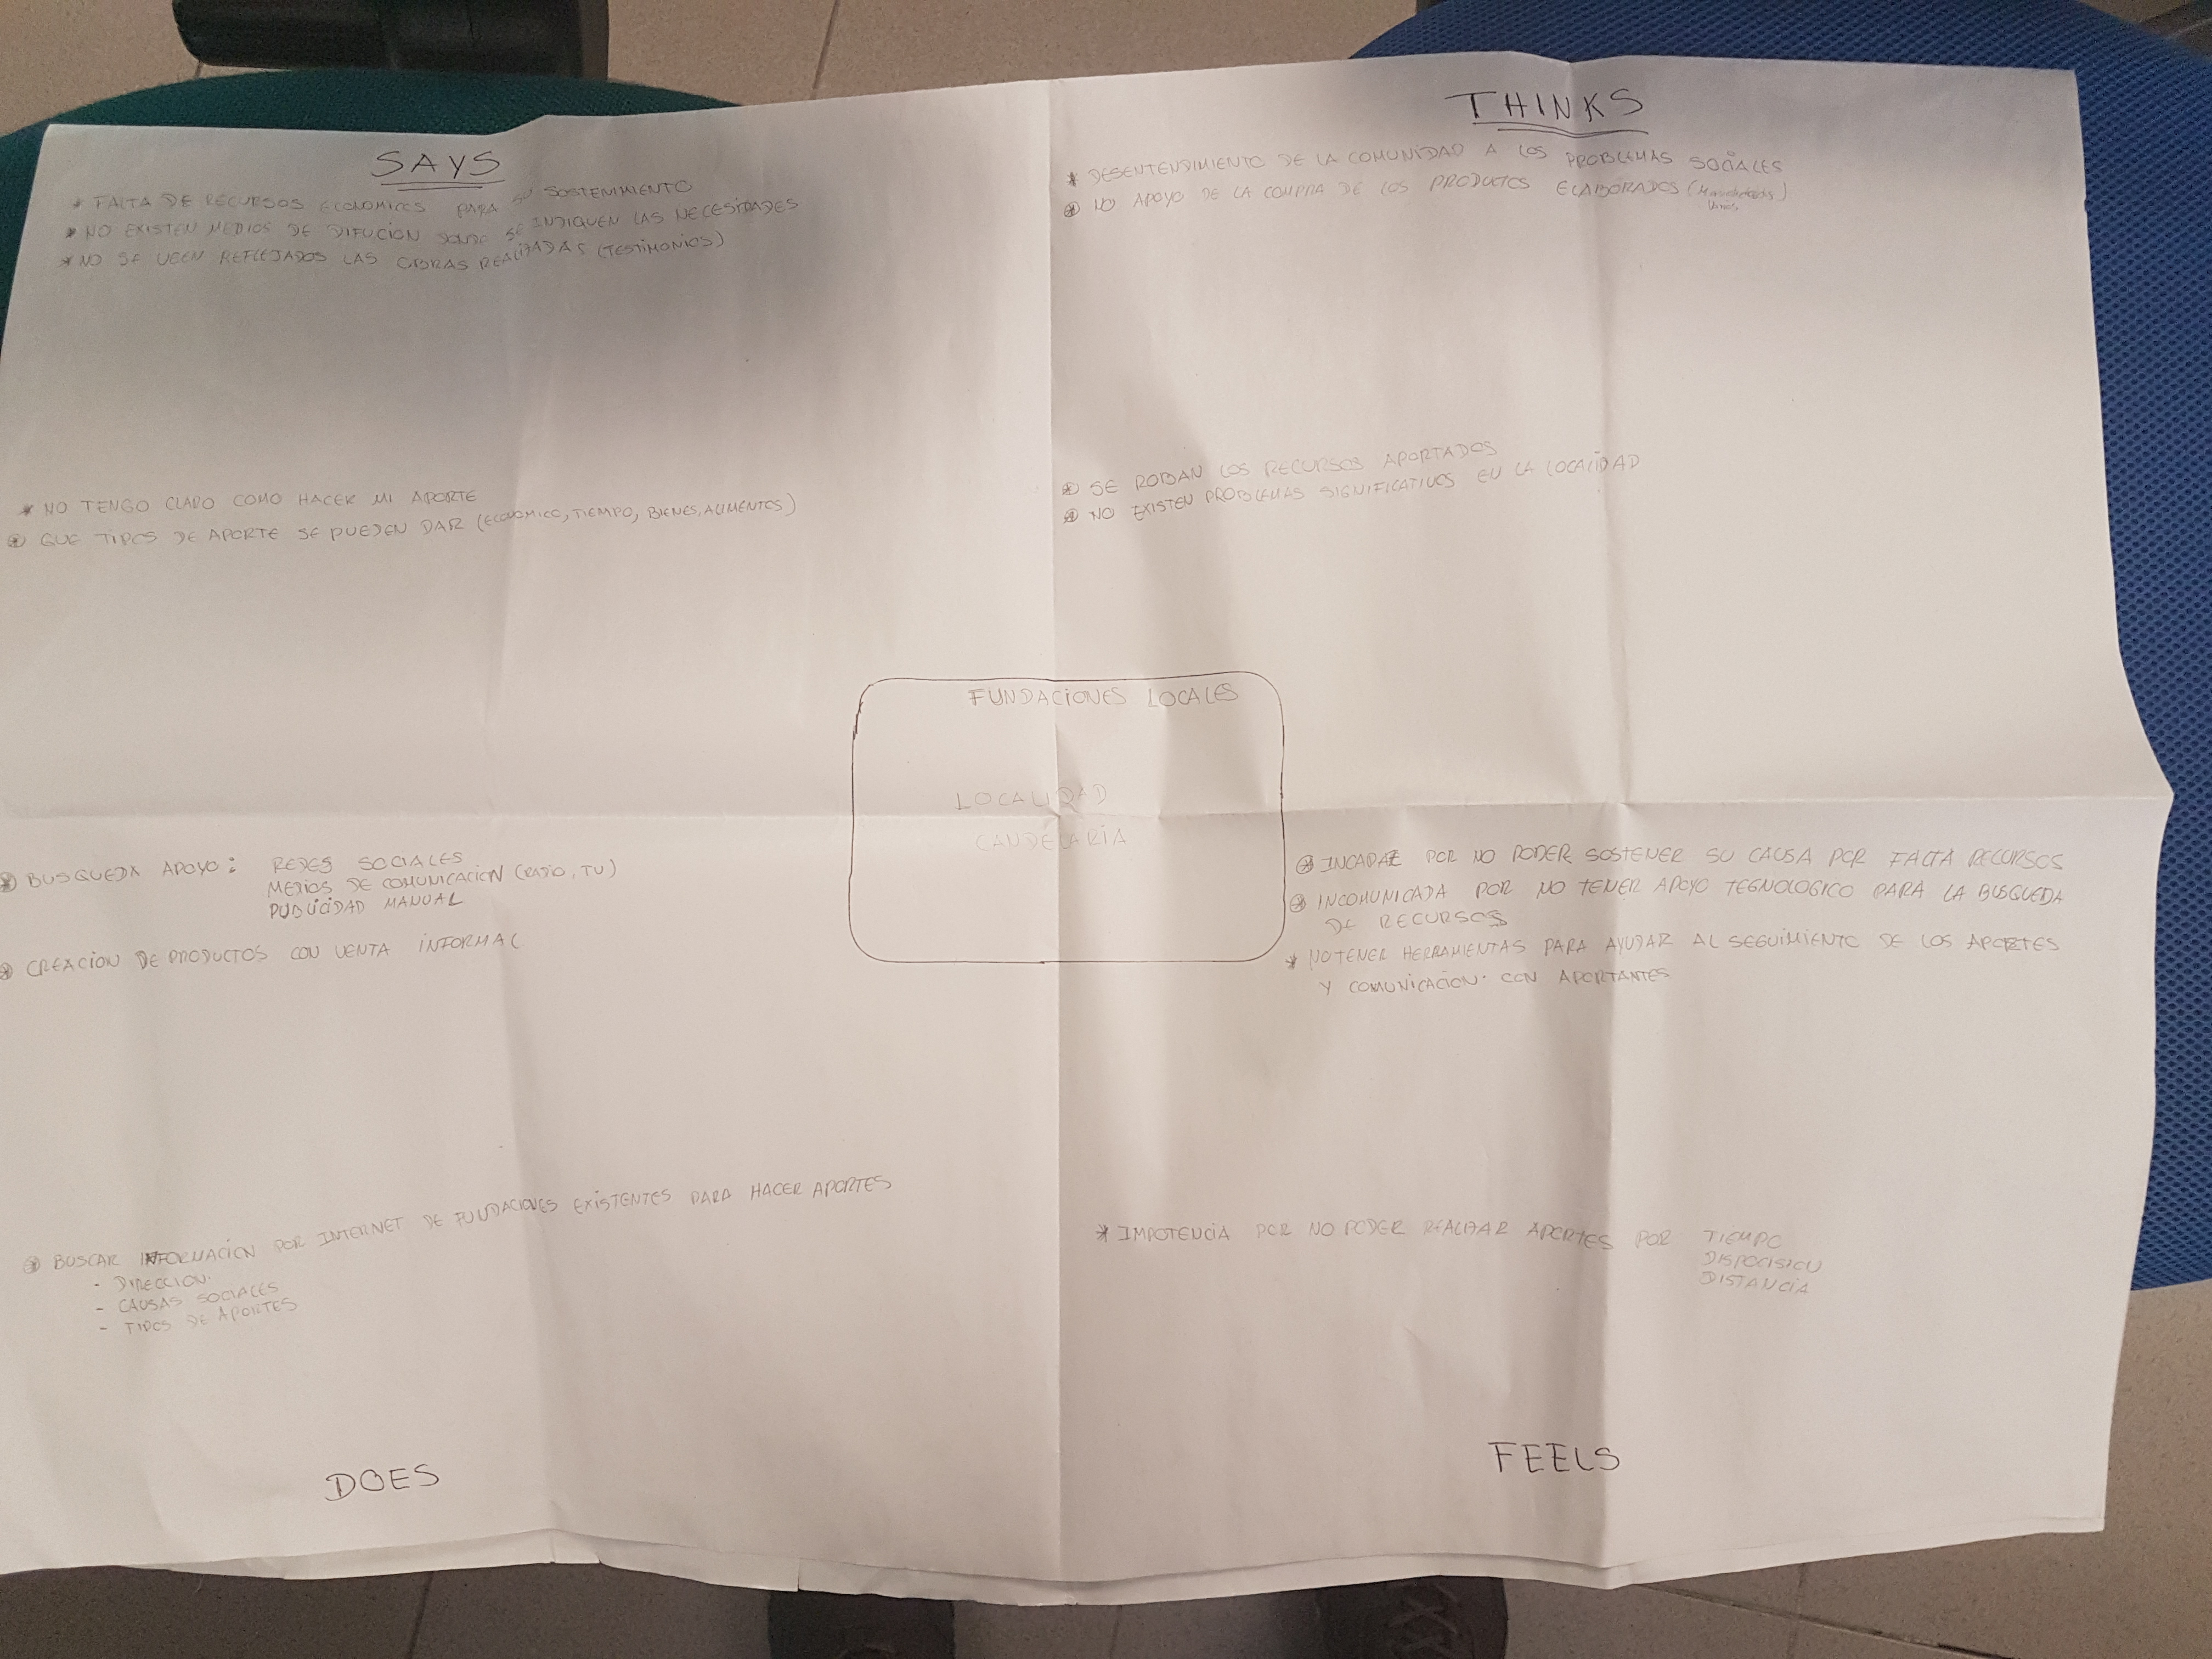 SAYS
* FALTA DE RECURSOS ECONOMICOS PARA SU SOSTENIMIENTO
* NO EXISTEN MEDIOS DE DIFUCION DONDE SE INDIQUEN LAS NECESIDADES
* NO SE VEEN REFLEJADOS LAS OBRAS REALIZADAS (TESTIMONIOS)
* NO TENGO CLARO COMO HACER MI APORTE
* QUE TIPOS DE APORTE SE PUEDEN DAR (ECONOMICO, TIEMPO, BIENES, ALIMENTOS)
THINKS
* DESENTENDIMIENTO DE LA COMUNIDAD A LOS PROBLEMAS SOCIALES
* NO APOYO DE LA COMPRA DE LOS PRODUCTOS ELABORADOS
* SE ROBAN LOS RECURSOS APORTADOS
* NO EXISTEN PROBLEMAS SIGNIFICATIVOS EN LA LOCALIDAD
FUNDACIONES LOCALES
LOCALIDAD
CANDELARIA
* BUSQUEDA APOYO : REDES SOCIALES
MEDIOS DE COMUNICACION (RADIO, TV)
PUBLICIDAD MANUAL
* CREACION DE PRODUCTOS CON VENTA INFORMAL
* BUSCAR INFORMACION POR INTERNET DE FUNDACIONES EXISTENTES PARA HACER APORTES
- DIRECCION.
- CAUSAS SOCIALES
- TIPOS DE APORTES
DOES
* INCAPAZ POR NO PODER SOSTENER SU CAUSA POR FALTA RECURSOS
* INCOMUNICADA POR NO TENER APOYO TEGNOLOGICO PARA LA BUSQUEDA
DE RECURSOS
* NO TENER HERRAMIENTAS PARA AYUDAR AL SEGUIMIENTO DE LOS APORTES
Y COMUNICACION. CON APORTANTES
* IMPOTENCIA POR NO PODER REALIZAR APORTES POR TIEMPO
DISPOSISION
DISTANCIA
FEELS